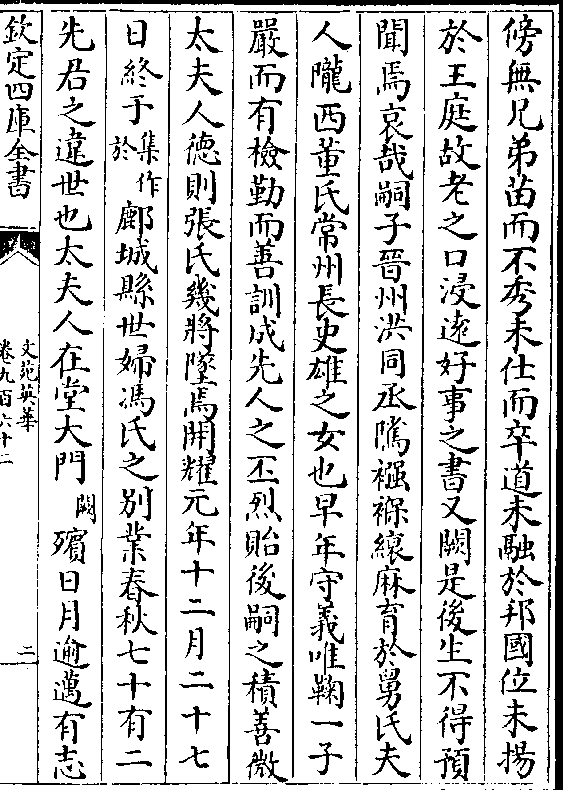 傍無兄弟苗而不秀未仕而卒道未融於邦國位未揚
於王庭故老之口浸逺好事之書又闕是後生不得預
聞焉哀哉嗣子晉州洪同丞隲襁褓縗麻育於舅氏夫
人隴西董氏常州長史雄之女也早年守義唯鞠一子
嚴而有檢勤而善訓成先人之丕烈貽後嗣之積善微
太夫人德則張氏幾將墜焉開耀元年十二月二十七
日終于集作於鄜城縣世婦馮氏之别業春秋七十有二
先君之違世也太夫人在堂大門闕殯日月逾邁有志
欽定四庫全書
文苑英華
卷九百六十二
二